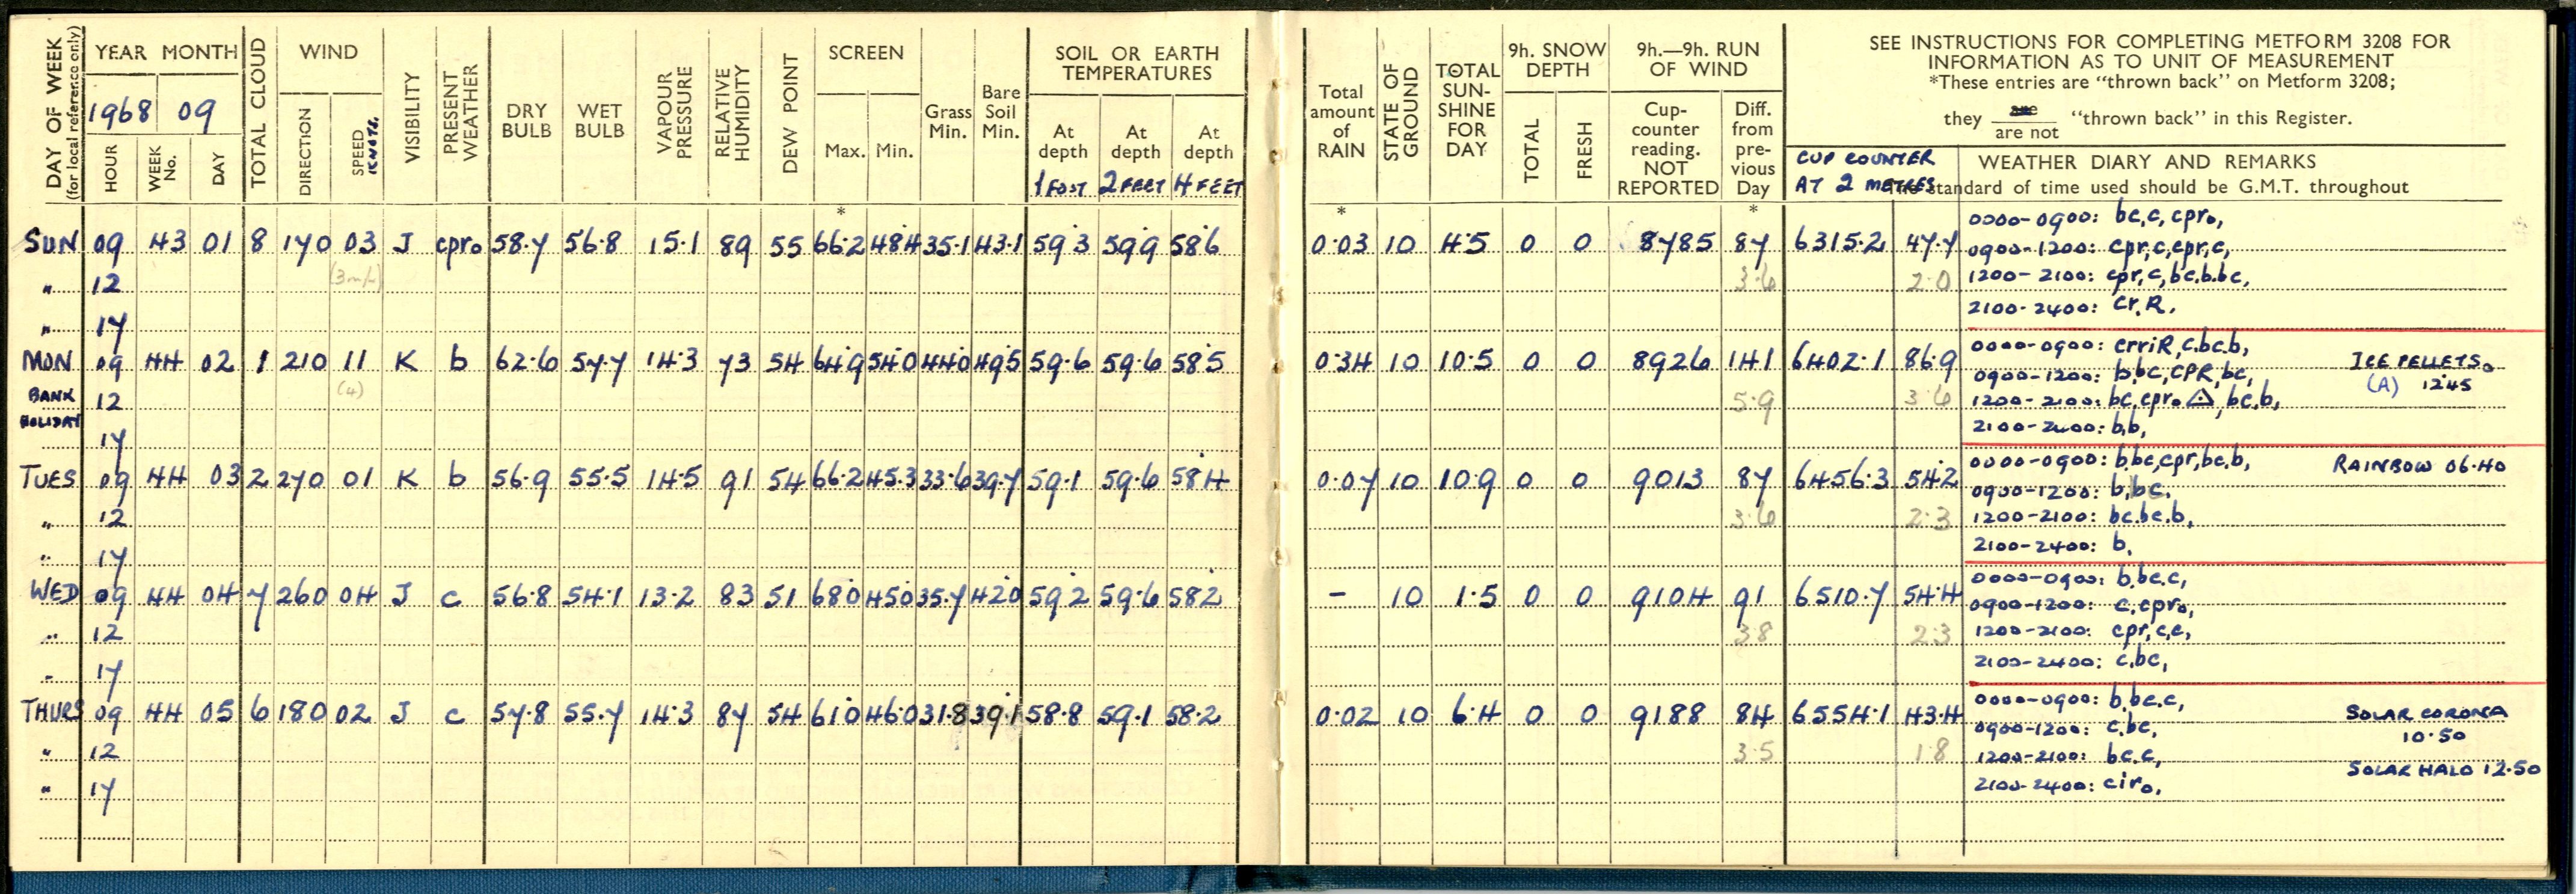 DAY OF WEEK
(for local reference only)
YEAR MONTH
1968 09
HOUR
WEEK No.
DAY
TOTAL CLOUD
WIND
DIRECTION
SPEED
KNOTS.
VISIBILITY
PRESENT WEATHER
DRY BULB
WET BULB
VAPOUR PRESSURE
RELATIVE HUMIDITY
DEW POINT
SCREEN
Max. Min.
Grass Min.
Bare Soil Min.
SOIL OR EARTH
TEMPERATURES
At depth At depth At depth
1 FOOT 2 FEET 4 FEET
Total amount of RAIN
STATE OF GROUND
TOTAL SUN-SHINE FOR DAY
9h. SNOW DEPTH
TOTAL
FRESH
9h.—9h. RUN OF WIND
Cup-counter reading. NOT REPORTED
Diff. from pre-vious Day
SEE INSTRUCTIONS FOR COMPLETING METFORM 3208 FOR
INFORMATION AS TO UNIT OF MEASUREMENT
*These entries are "thrown back" on Metform 3208;
they are / are not "thrown back" in this Register.
CUP COUNTER
AT 2 METRES
WEATHER DIARY AND REMARKS
The standard of time used should be G.M.T. throughout
* * *
SUN 09 43 01 8 170 03 J cpr₀ 58.7 56.8 15.1 89 55 66.2 48.4 35.1 43.1 59.3 59.9 58.6 0.03 10 4.5 0 0 8785 87 6315.2 47.7
0000-0900: bc,c,cpr₀,
0900-1200: cpr,c,cpr,c,
" 12 (3m/h) 3.6 2.0 1200-2100: cpr,c,bc.b.bc,
2100-2400: cr.R.
" 17
MON 09 44 02 1 210 11 K b 62.6 57.7 14.3 73 54 64.9 54.0 44.0 49.5 59.6 59.6 58.5 0.34 10 10.5 0 0 8926 141 6402.1 86.9
0000-0900: crriR,c.bc.b,
ICE PELLETS.
0900-1200: b,bc,CPR,bc,
(A) 12.45
BANK HOLIDAY 12 (4) 5.9 3.6 1200-2100: bc,cpr₀ △,bc,b,
2100-2400: b,b,
17
TUES 09 44 03 2 270 01 K b 56.9 55.5 14.5 91 54 66.2 45.3 33.6 39.7 59.1 59.6 58.4 0.07 10 10.9 0 0 9013 87 6456.3 54.2
0000-0900: b,bc,cpr,bc,b,
RAINBOW 06.40
0900-1200: b,bc.
" 12 3.6 2.3 1200-2100: bc.bc.b,
2100-2400: b.
" 17
WED 09 44 04 7 260 04 J c 56.8 54.1 13.2 83 51 68.0 45.0 35.7 42.0 59.2 59.6 58.2 - 10 1.5 0 0 9104 91 6510.7 54.4
0000-0900: b,bc.c,
0900-1200: c,cpr₀,
" 12 3.8 2.3 1200-2100: cpr,c,c,
2100-2400: c,bc,
" 17
THURS 09 44 05 6 180 02 J c 57.8 55.7 14.3 87 54 61.0 46.0 31.8 39.1 58.8 59.1 58.2 0.02 10 6.4 0 0 9188 84 6554.1 43.4
0000-0900: b,bc.c,
SOLAR CORONA
10.50
0900-1200: c,bc,
" 12 3.5 1.8 1200-2100: bc.c,
SOLAR HALO 12.50
2100-2400: cir₀,
" 17